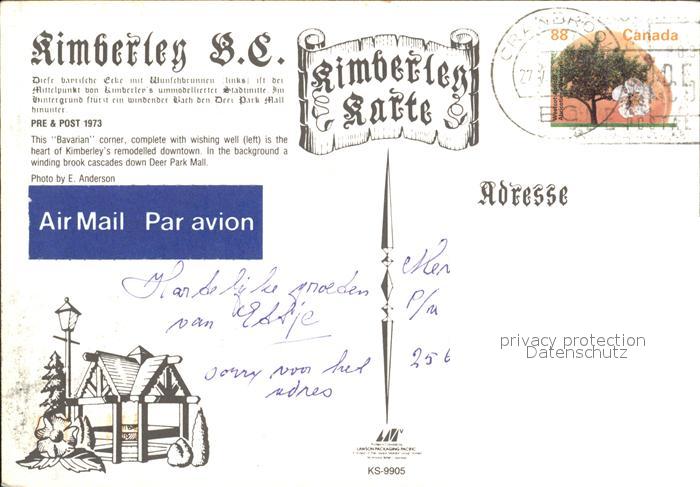 Kimberley B.C.
Diese bayrische Ecke mit Wunschbrunnen (links) ist der
Mittelpunkt von Kimberley's ummodellierter Stadtmitte. Im
Hintergrund stürzt ein windender Bach den Deer Park Mall
hinunter.
PRE & POST 1973
This "Bavarian" corner, complete with wishing well (left) is the
heart of Kimberley's remodelled downtown. In the background a
winding brook cascades down Deer Park Mall.
Photo by E. Anderson
Air Mail Par avion
Kimberley
Karte
88 Canada
CRANBROOK
Adresse
Hartelijke groeten
van
sorry voor het
adres
privacy protection
Datenschutz
LAWSON PACKAGING PACIFIC
KS-9905